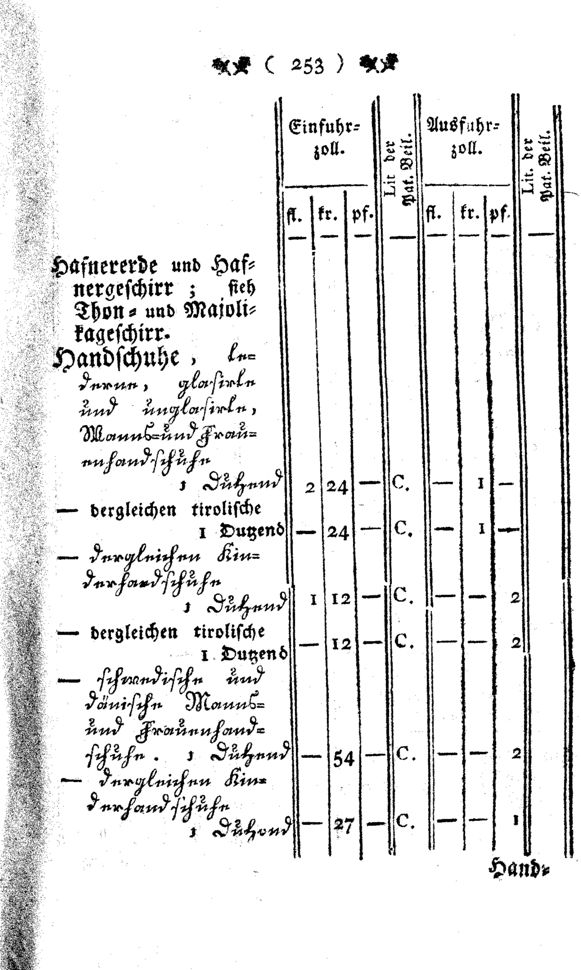 ( 253 )
Einfuhr=
zoll. Lit. der Pat. Beil. Ausfuhr=
zoll. Lit. der Pat. Beil.
fl. kr. pf. fl. kr. pf.
— — — — — — — —
Hafnererde und Haf=
nergeschirr ; sieh
Thon= und Majoli=
kageschirr.
Handschuhe , le=
derne, glasirte
und unglasirte,
Manns= und Frau=
enhandschuhe
1 Dutzend 2 24 — C. — 1 —
— dergleichen tirolische
1 Dutzend — 24 — C. — 1 —
— dergleichen Kin=
derhandschuhe
1 Dutzend 1 12 — C. — — 2
— dergleichen tirolische
1 Dutzend — 12 — C. — — 2
— schwedische und
dänische Manns=
und Frauenhand=
schuhe . 1 Dutzend — 54 — C. — — 2
— dergleichen Kin=
derhandschuhe
1 Dutzend — 27 — C. — — 1
Hand=